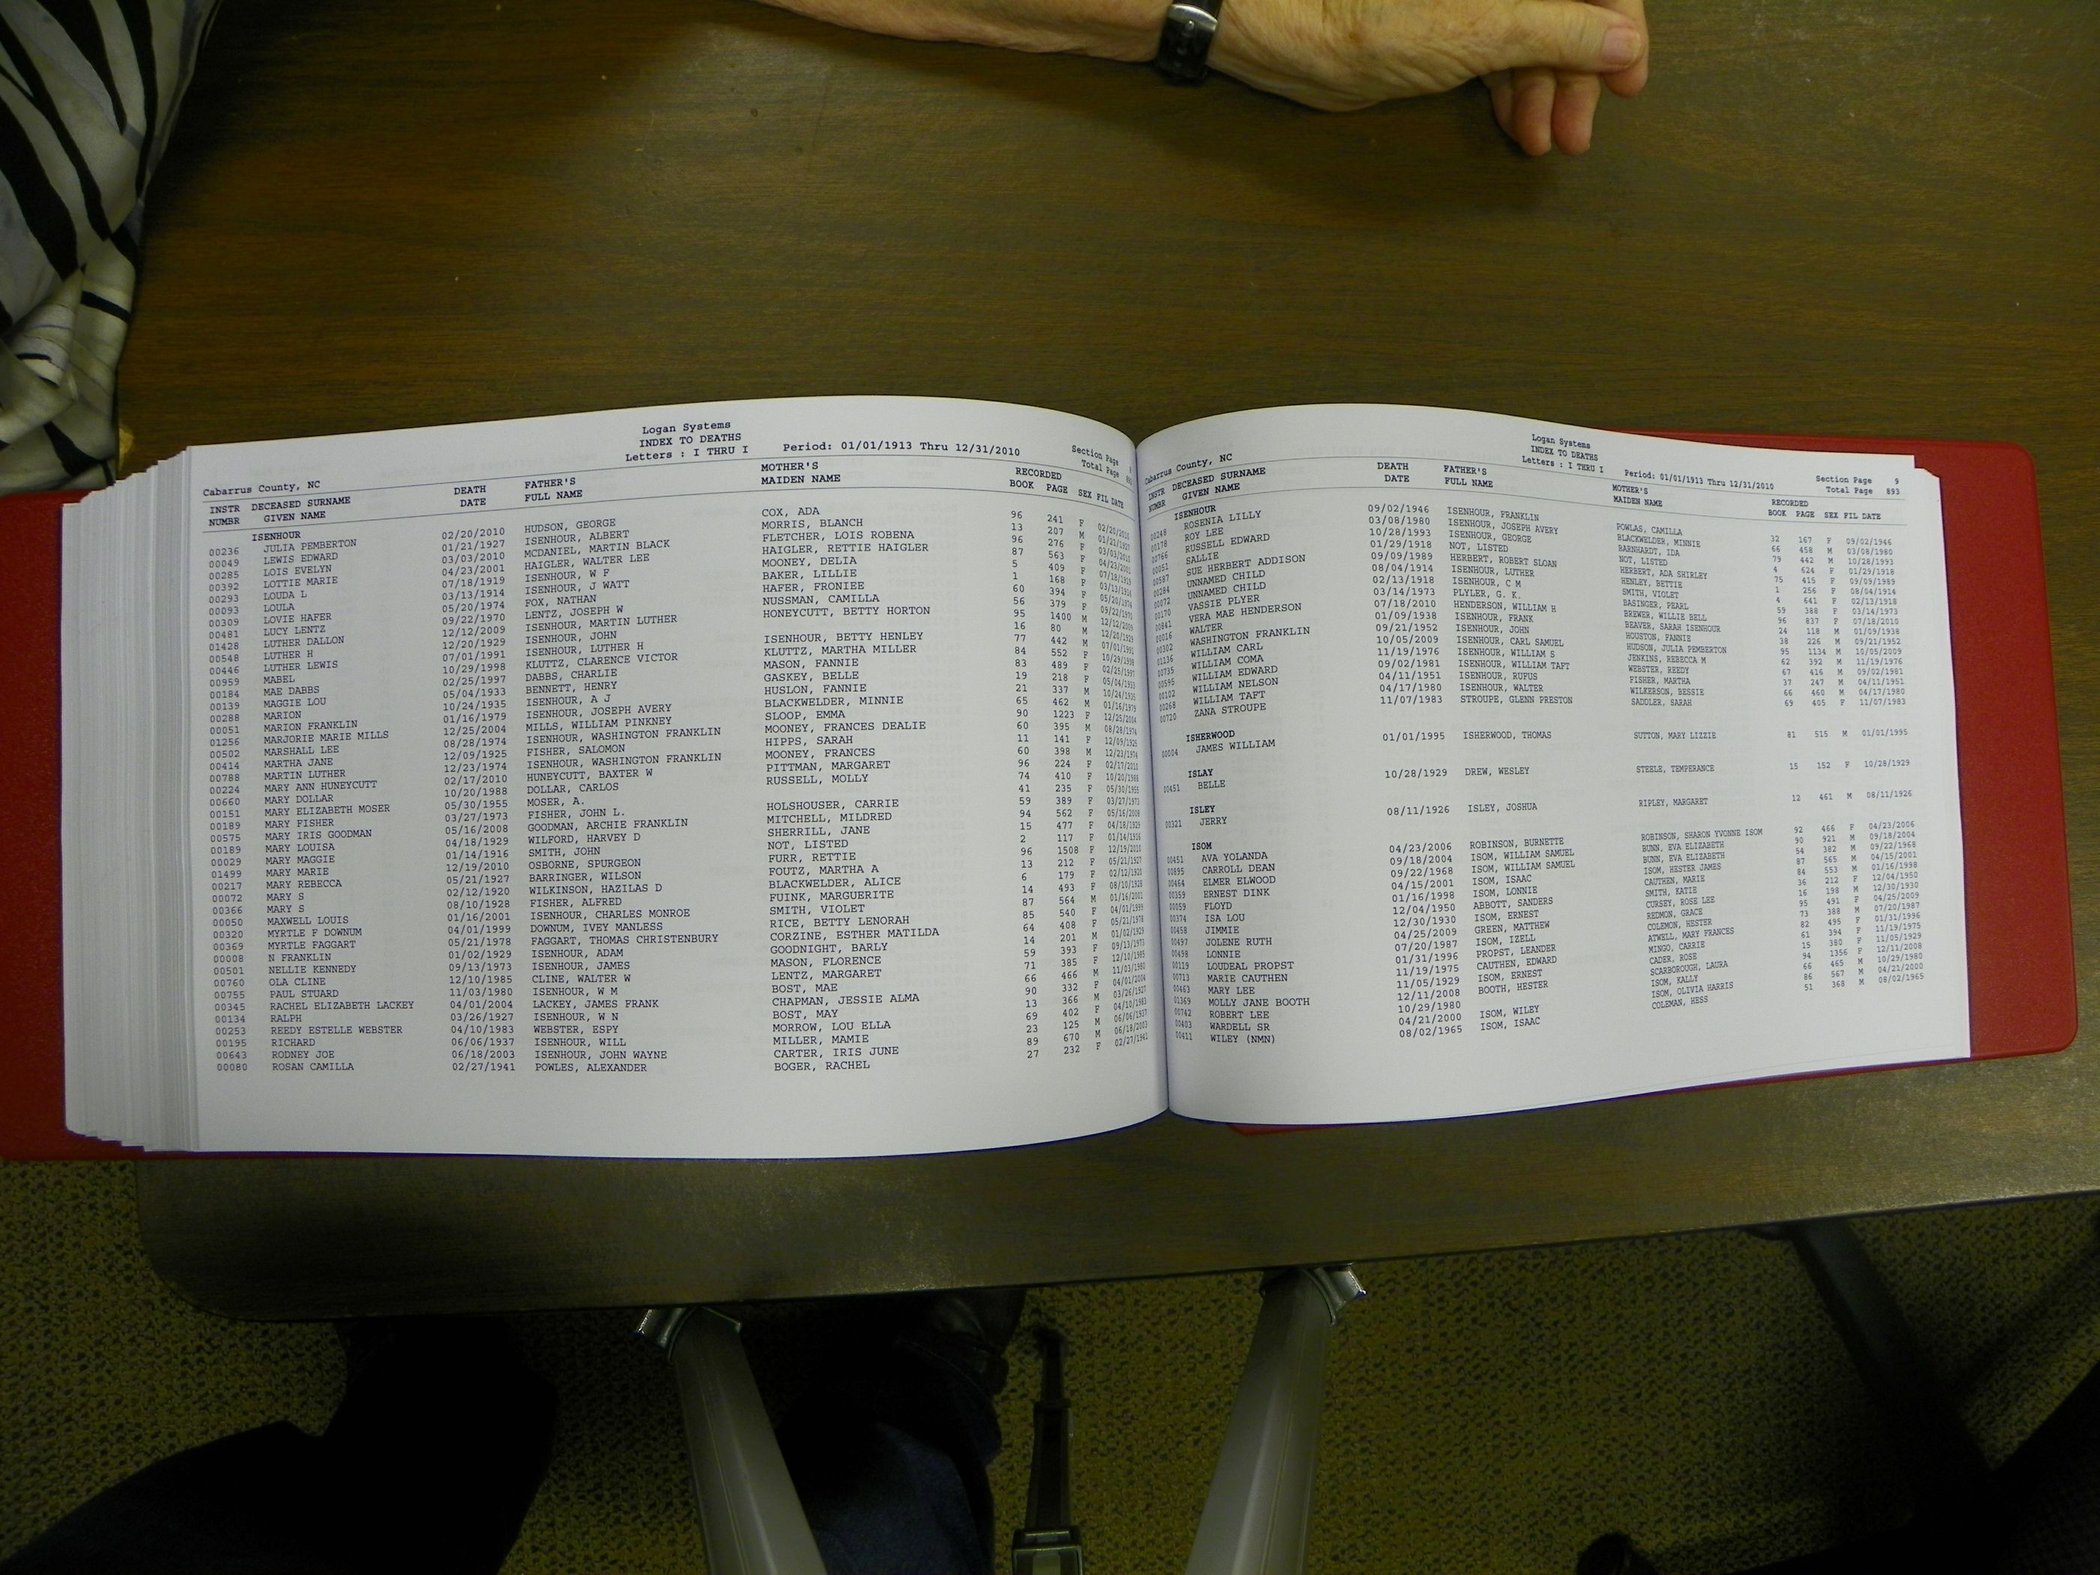 Logan Systems
INDEX TO DEATHS
Cabarrus County, NC Letters : I THRU I Period: 01/01/1913 Thru 12/31/2010 Section Page
Total Page
INSTR DECEASED SURNAME DEATH FATHER'S MOTHER'S RECORDED
NUMBR GIVEN NAME DATE FULL NAME MAIDEN NAME BOOK PAGE SEX FIL DATE
ISENHOUR
00236 JULIA PEMBERTON 02/20/2010 HUDSON, GEORGE COX, ADA 96 241 F 02/20/2010
00049 LEWIS EDWARD 01/21/1927 ISENHOUR, ALBERT MORRIS, BLANCH 13 207 M 01/21/1927
00285 LOIS EVELYN 03/03/2010 MCDANIEL, MARTIN BLACK FLETCHER, LOIS ROBENA 96 276 F 03/03/2010
00392 LOTTIE MARIE 04/23/2001 HAIGLER, WALTER LEE HAIGLER, RETTIE HAIGLER 87 563 F 04/23/2001
00293 LOUDA L 07/18/1919 ISENHOUR, W F MOONEY, DELIA 5 409 F 07/18/1919
00093 LOULA 03/13/1914 ISENHOUR, J WATT BAKER, LILLIE 1 168 F 03/13/1914
00309 LOVIE HAFER 05/20/1974 FOX, NATHAN HAFER, FRONIEE 60 394 F 05/20/1974
00481 LUCY LENTZ 09/22/1970 LENTZ, JOSEPH W NUSSMAN, CAMILLA 56 379 F 09/22/1970
01428 LUTHER DALLON 12/12/2009 ISENHOUR, MARTIN LUTHER HONEYCUTT, BETTY HORTON 95 1400 M 12/12/2009
00548 LUTHER H 12/20/1929 ISENHOUR, JOHN 16 80 M 12/20/1929
00446 LUTHER LEWIS 07/01/1991 ISENHOUR, LUTHER H ISENHOUR, BETTY HENLEY 77 442 M 07/01/1991
00959 MABEL 10/29/1998 KLUTTZ, CLARENCE VICTOR KLUTTZ, MARTHA MILLER 84 552 F 10/29/1998
00184 MAE DABBS 02/25/1997 DABBS, CHARLIE MASON, FANNIE 83 489 F 02/25/1997
00139 MAGGIE LOU 05/04/1933 BENNETT, HENRY GASKEY, BELLE 19 218 F 05/04/1933
00288 MARION 10/24/1935 ISENHOUR, A J HUSLON, FANNIE 21 337 M 10/24/1935
00051 MARION FRANKLIN 01/16/1979 ISENHOUR, JOSEPH AVERY BLACKWELDER, MINNIE 65 462 M 01/16/1979
01256 MARJORIE MARIE MILLS 12/25/2004 MILLS, WILLIAM PINKNEY SLOOP, EMMA 90 1223 F 12/25/2004
00502 MARSHALL LEE 08/28/1974 ISENHOUR, WASHINGTON FRANKLIN MOONEY, FRANCES DEALIE 60 395 M 08/28/1974
00414 MARTHA JANE 12/09/1925 FISHER, SALOMON HIPPS, SARAH 11 141 F 12/09/1925
00788 MARTIN LUTHER 12/23/1974 ISENHOUR, WASHINGTON FRANKLIN MOONEY, FRANCES 60 398 M 12/23/1974
00224 MARY ANN HUNEYCUTT 02/17/2010 HUNEYCUTT, BAXTER W PITTMAN, MARGARET 96 224 F 02/17/2010
00660 MARY DOLLAR 10/20/1988 DOLLAR, CARLOS RUSSELL, MOLLY 74 410 F 10/20/1988
00151 MARY ELIZABETH MOSER 05/30/1955 MOSER, A. 41 235 F 05/30/1955
00189 MARY FISHER 03/27/1973 FISHER, JOHN L. HOLSHOUSER, CARRIE 59 389 F 03/27/1973
00575 MARY IRIS GOODMAN 05/16/2008 GOODMAN, ARCHIE FRANKLIN MITCHELL, MILDRED 94 562 F 05/16/2008
00189 MARY LOUISA 04/18/1929 WILFORD, HARVEY D SHERRILL, JANE 15 477 F 04/18/1929
00029 MARY MAGGIE 01/14/1916 SMITH, JOHN NOT, LISTED 2 117 F 01/14/1916
01499 MARY MARIE 12/19/2010 OSBORNE, SPURGEON FURR, RETTIE 96 1508 F 12/19/2010
00217 MARY REBECCA 05/21/1927 BARRINGER, WILSON FOUTZ, MARTHA A 13 212 F 05/21/1927
00072 MARY S 02/12/1920 WILKINSON, HAZILAS D BLACKWELDER, ALICE 6 179 F 02/12/1920
00366 MARY S 08/10/1928 FISHER, ALFRED FUINK, MARGUERITE 14 493 F 08/10/1928
00050 MAXWELL LOUIS 01/16/2001 ISENHOUR, CHARLES MONROE SMITH, VIOLET 87 564 M 01/16/2001
00320 MYRTLE F DOWNUM 04/01/1999 DOWNUM, IVEY MANLESS RICE, BETTY LENORAH 85 540 F 04/01/1999
00369 MYRTLE FAGGART 05/21/1978 FAGGART, THOMAS CHRISTENBURY CORZINE, ESTHER MATILDA 64 408 F 05/21/1978
00008 N FRANKLIN 01/02/1929 ISENHOUR, ADAM GOODNIGHT, BARLY 14 201 M 01/02/1929
00501 NELLIE KENNEDY 09/13/1973 ISENHOUR, JAMES MASON, FLORENCE 59 393 F 09/13/1973
00760 OLA CLINE 12/10/1985 CLINE, WALTER W LENTZ, MARGARET 71 385 F 12/10/1985
00755 PAUL STUARD 11/03/1980 ISENHOUR, W M BOST, MAE 66 466 M 11/03/1980
00345 RACHEL ELIZABETH LACKEY 04/01/2004 LACKEY, JAMES FRANK CHAPMAN, JESSIE ALMA 90 332 F 04/01/2004
00134 RALPH 03/26/1927 ISENHOUR, W N BOST, MAY 13 366 M 03/26/1927
00253 REEDY ESTELLE WEBSTER 04/10/1983 WEBSTER, ESPY MORROW, LOU ELLA 69 402 F 04/10/1983
00195 RICHARD 06/06/1937 ISENHOUR, WILL MILLER, MAMIE 23 125 M 06/06/1937
00643 RODNEY JOE 06/18/2003 ISENHOUR, JOHN WAYNE CARTER, IRIS JUNE 89 670 M 06/18/2003
00080 ROSAN CAMILLA 02/27/1941 POWLES, ALEXANDER BOGER, RACHEL 27 232 F 02/27/1941
Logan Systems
INDEX TO DEATHS
Cabarrus County, NC Letters : I THRU I Period: 01/01/1913 Thru 12/31/2010 Section Page 9
Total Page 893
INSTR DECEASED SURNAME DEATH FATHER'S MOTHER'S RECORDED
NUMBR GIVEN NAME DATE FULL NAME MAIDEN NAME BOOK PAGE SEX FIL DATE
ISENHOUR
00248 ROSENIA LILLY 09/02/1946 ISENHOUR, FRANKLIN POWLAS, CAMILLA 32 167 F 09/02/1946
00178 ROY LEE 03/08/1980 ISENHOUR, JOSEPH AVERY BLACKWELDER, MINNIE 66 458 M 03/08/1980
00766 RUSSELL EDWARD 10/28/1993 ISENHOUR, GEORGE BARNHARDT, IDA 79 442 M 10/28/1993
00051 SALLIE 01/29/1918 NOT, LISTED NOT, LISTED 4 624 F 01/29/1918
00587 SUE HERBERT ADDISON 09/09/1989 HERBERT, ROBERT SLOAN HERBERT, ADA SHIRLEY 75 415 F 09/09/1989
00284 UNNAMED CHILD 08/04/1914 ISENHOUR, LUTHER HENLEY, BETTIE 1 256 F 08/04/1914
00072 UNNAMED CHILD 02/13/1918 ISENHOUR, C M SMITH, VIOLET 4 641 F 02/13/1918
00170 VASSIE PLYER 03/14/1973 PLYLER, G. K. BASINGER, PEARL 59 388 F 03/14/1973
00841 VERA MAE HENDERSON 07/18/2010 HENDERSON, WILLIAM H BREWER, WILLIE BELL 96 837 F 07/18/2010
00016 WALTER 01/09/1938 ISENHOUR, FRANK BEAVER, SARAH ISENHOUR 24 118 M 01/09/1938
00302 WASHINGTON FRANKLIN 09/21/1952 ISENHOUR, JOHN HOUSTON, FANNIE 38 226 M 09/21/1952
01136 WILLIAM CARL 10/05/2009 ISENHOUR, CARL SAMUEL HUDSON, JULIA PEMBERTON 95 1134 M 10/05/2009
00735 WILLIAM COMA 11/19/1976 ISENHOUR, WILLIAM S JENKINS, REBECCA M 62 392 M 11/19/1976
00595 WILLIAM EDWARD 09/02/1981 ISENHOUR, WILLIAM TAFT WEBSTER, REEDY 67 416 M 09/02/1981
00102 WILLIAM NELSON 04/11/1951 ISENHOUR, RUFUS FISHER, MARTHA 37 247 M 04/11/1951
00268 WILLIAM TAFT 04/17/1980 ISENHOUR, WALTER WILKERSON, BESSIE 66 460 M 04/17/1980
00720 ZANA STROUPE 11/07/1983 STROUPE, GLENN PRESTON SADDLER, SARAH 69 405 F 11/07/1983
ISHERWOOD
00004 JAMES WILLIAM 01/01/1995 ISHERWOOD, THOMAS SUTTON, MARY LIZZIE 81 515 M 01/01/1995
ISLAY
00451 BELLE 10/28/1929 DREW, WESLEY STEELE, TEMPERANCE 15 152 F 10/28/1929
ISLEY
00321 JERRY 08/11/1926 ISLEY, JOSHUA RIPLEY, MARGARET 12 461 M 08/11/1926
ISOM
00451 AVA YOLANDA 04/23/2006 ROBINSON, BURNETTE ROBINSON, SHARON YVONNE ISOM 92 466 F 04/23/2006
00895 CARROLL DEAN 09/18/2004 ISOM, WILLIAM SAMUEL BUNN, EVA ELIZABETH 90 921 M 09/18/2004
00464 ELMER ELWOOD 09/22/1968 ISOM, WILLIAM SAMUEL BUNN, EVA ELIZABETH 54 382 M 09/22/1968
00359 ERNEST DINK 04/15/2001 ISOM, ISAAC ISOM, HESTER JAMES 87 565 M 04/15/2001
00059 FLOYD 01/16/1998 ISOM, LONNIE CAUTHEN, MARIE 84 553 M 01/16/1998
00374 ISA LOU 12/04/1950 ABBOTT, SANDERS SMITH, KATIE 36 212 F 12/04/1950
00458 JIMMIE 12/30/1930 ISOM, ERNEST CURSEY, ROSE LEE 16 198 M 12/30/1930
00497 JOLENE RUTH 04/25/2009 GREEN, MATTHEW REDMON, GRACE 95 491 F 04/25/2009
00498 LONNIE 07/20/1987 ISOM, IZELL COLEMON, HESTER 73 388 M 07/20/1987
00119 LOUDEAL PROPST 01/31/1996 PROPST, LEANDER ATWELL, MARY FRANCES 82 495 F 01/31/1996
00713 MARIE CAUTHEN 11/19/1975 CAUTHEN, EDWARD MINGO, CARRIE 61 394 F 11/19/1975
00463 MARY LEE 11/05/1929 ISOM, ERNEST CADER, ROSE 15 380 F 11/05/1929
01369 MOLLY JANE BOOTH 12/11/2008 BOOTH, HESTER SCARBOROUGH, LAURA 94 1356 F 12/11/2008
00742 ROBERT LEE 10/29/1980 ISOM, KALLY 66 465 M 10/29/1980
00403 WARDELL SR 04/21/2000 ISOM, WILEY ISOM, OLIVIA HARRIS 86 567 M 04/21/2000
00411 WILEY (NMN) 08/02/1965 ISOM, ISAAC COLEMAN, HESS 51 368 M 08/02/1965